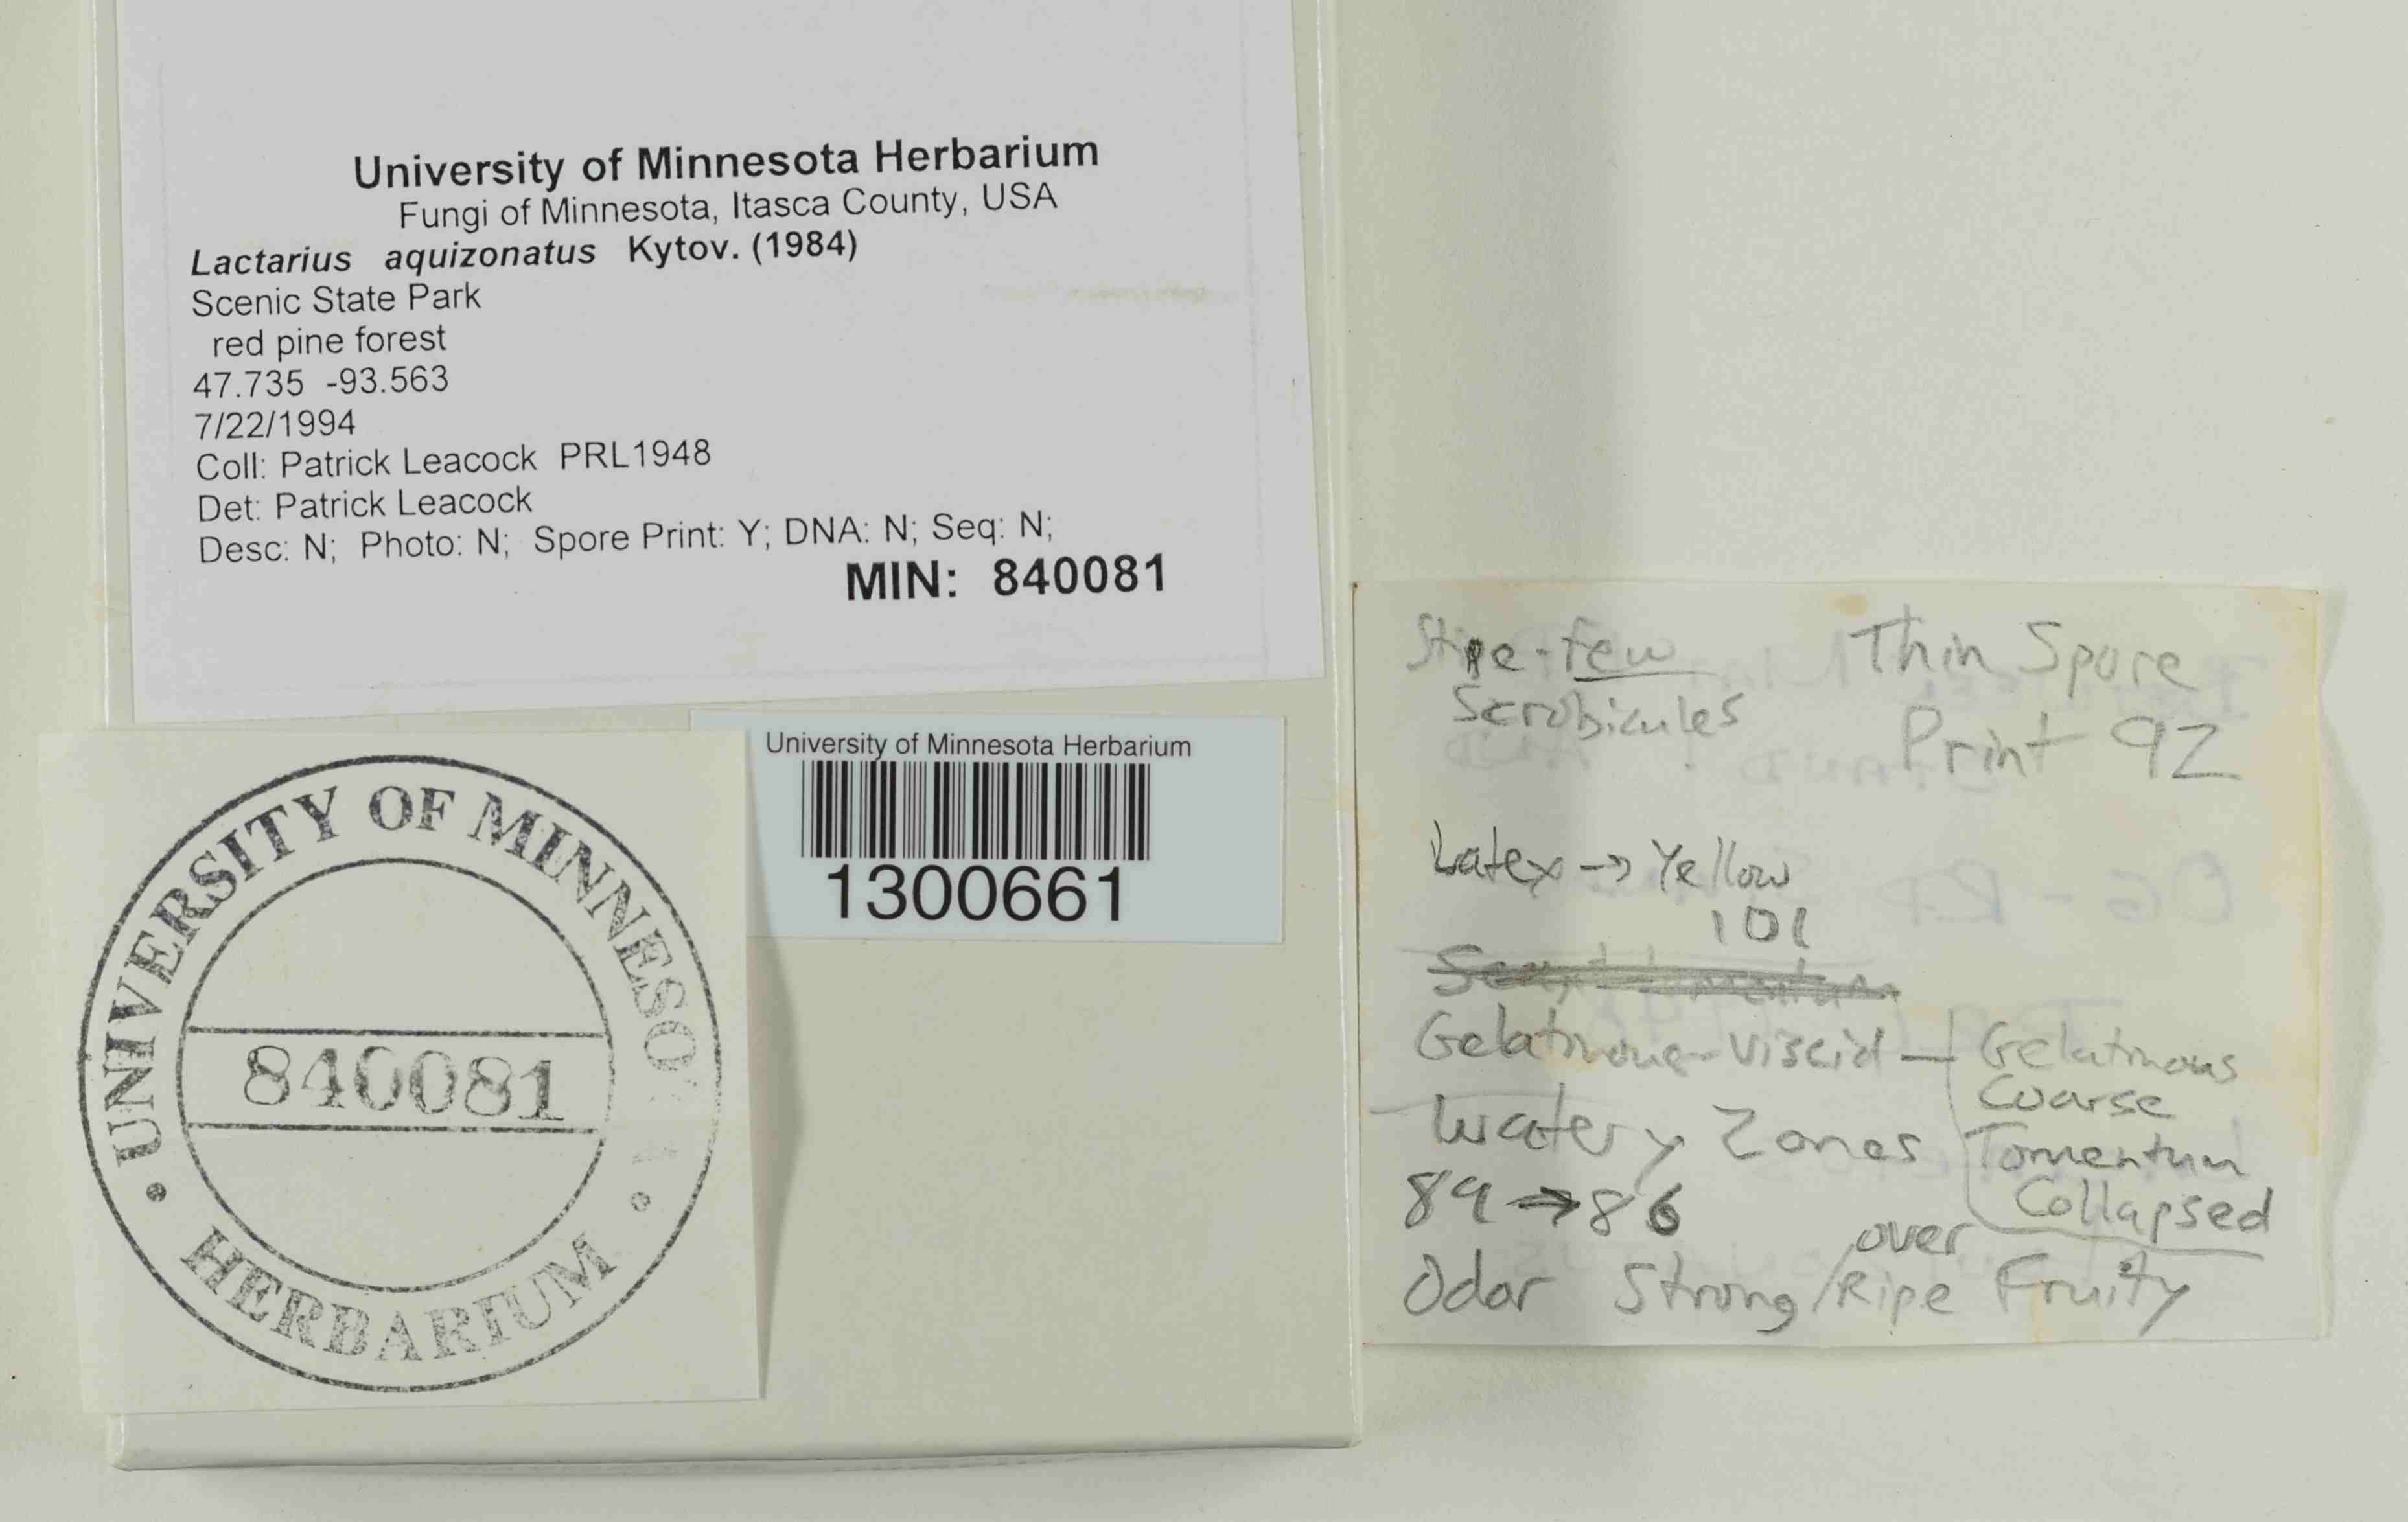 University of Minnesota Herbarium
Fungi of Minnesota, Itasca County, USA
Lactarius aquizonatus Kytov. (1984)
Scenic State Park
red pine forest
47.735 -93.563
7/22/1994
Coll: Patrick Leacock PRL1948
Det: Patrick Leacock
Desc: N; Photo: N; Spore Print: Y; DNA: N; Seq: N;
MIN: 840081
University of Minnesota Herbarium
1300661
UNIVERSITY OF MINNESO
840081
HERBARIUM
Stipe-few
Scrobicules
Thin Spore
Print 92
Latex → Yellow
101
Gelatinous-Viscid —
Gelatinous
Coarse
Tomentum
Collapsed
Watery Zones
89 → 86
Odor Strong / over Ripe Fruity